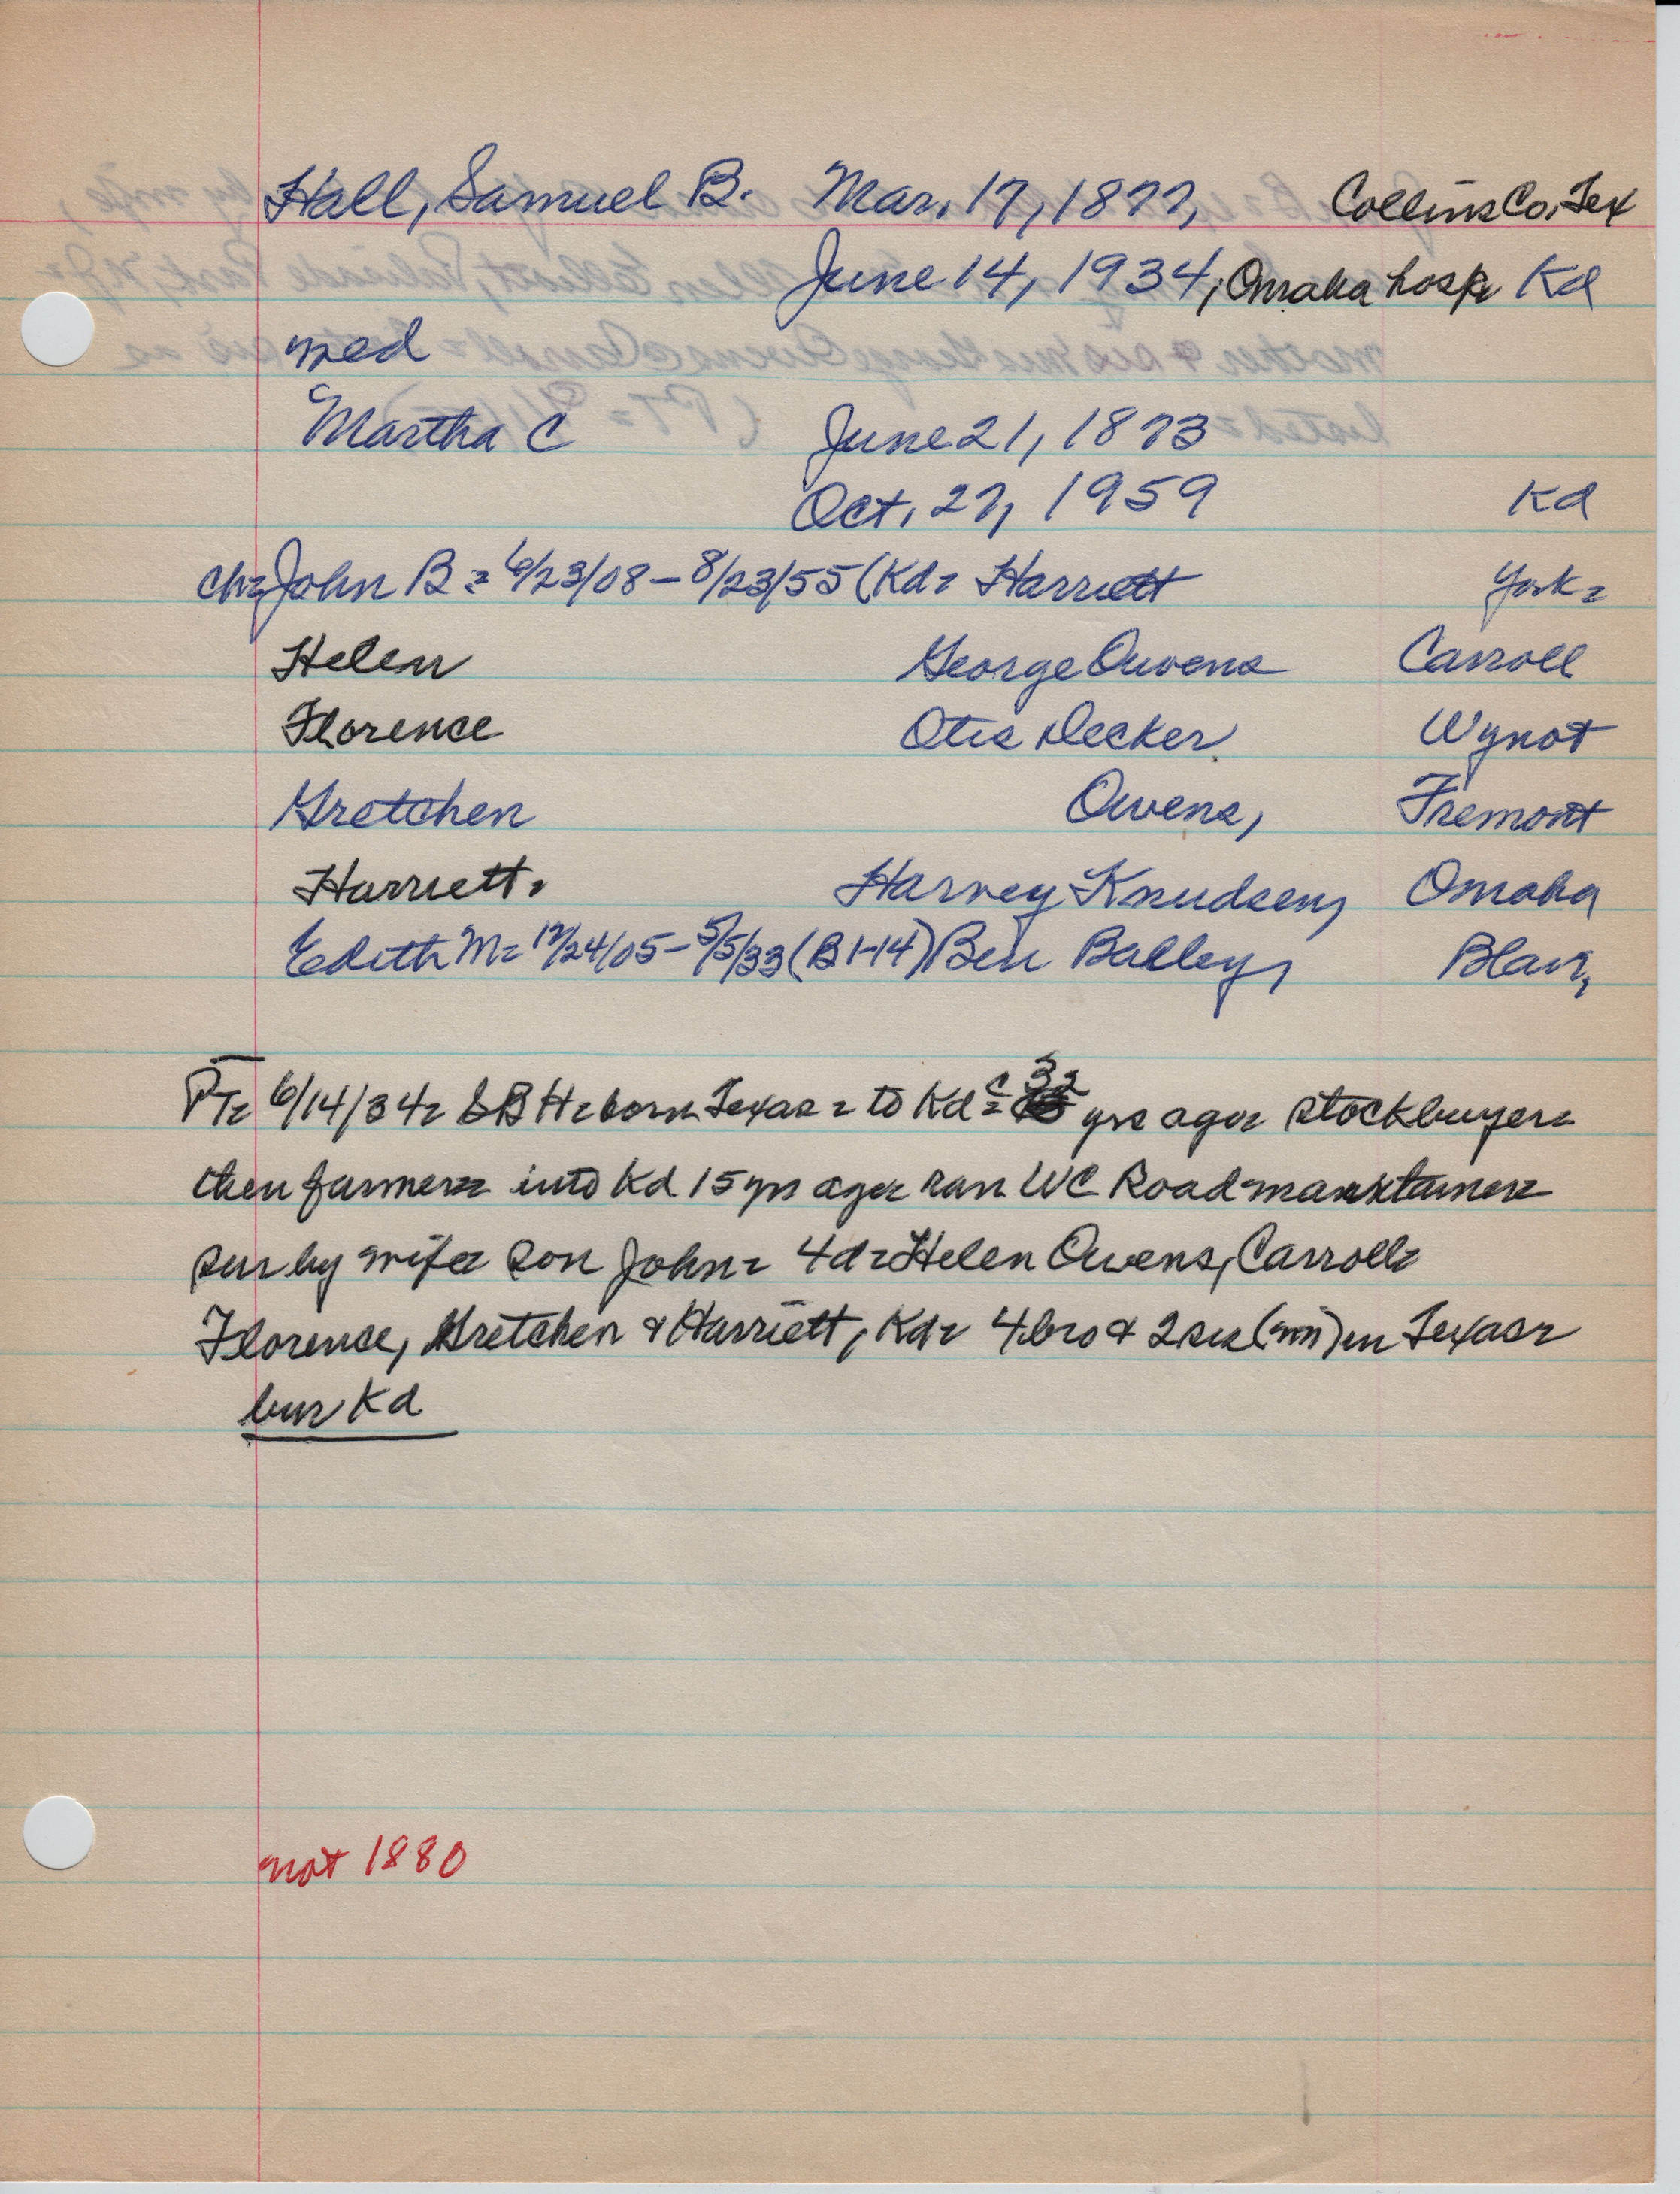 Hall, Samuel B. Mar. 17, 1877, Collins Co, Tex
June 14, 1934, Omaha hosp Kd
med
Martha C June 21, 1873
Oct. 27, 1959 Kd
ch= John B = 6/23/08 - 8/23/55 (Kd= Harriett York=
Helen George Owens Carroll
Florence Otis Decker Wynot
Gretchen Owens, Fremont
Harriett= Harvey Knudsen, Omaha
Edith M= 12/24/05 - 5/5/33 (B 1-14) Ben Balley, Blair,
PT= 6/14/34= SBH= born Texas = to Kd = c 32 yrs ago= stockbuyer=
then farmer= into Kd 15 yrs ago= ran WC Road maintainer=
sur by wife= son John= 4d= Helen Owens, Carroll=
Florence, Gretchen & Harriett, Kd= 4 bro & 2 sis (nn) in Texas=
bur Kd
not 1880